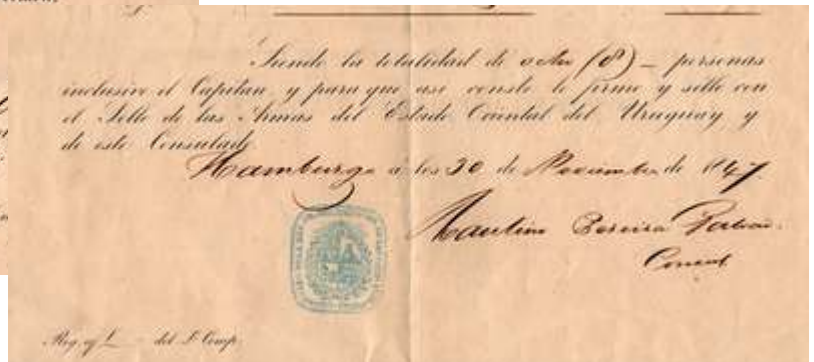 Siendo la totalidad de ocho (8) — personas
inclusive el Capitan, y para que asi conste lo firmo y sello con
el Sello de las Armas del Estado Oriental del Uruguay y
de este Consulado.
Hamburgo á los 30 de Noviembre de 1847
Pereira
Consul
Reg. del